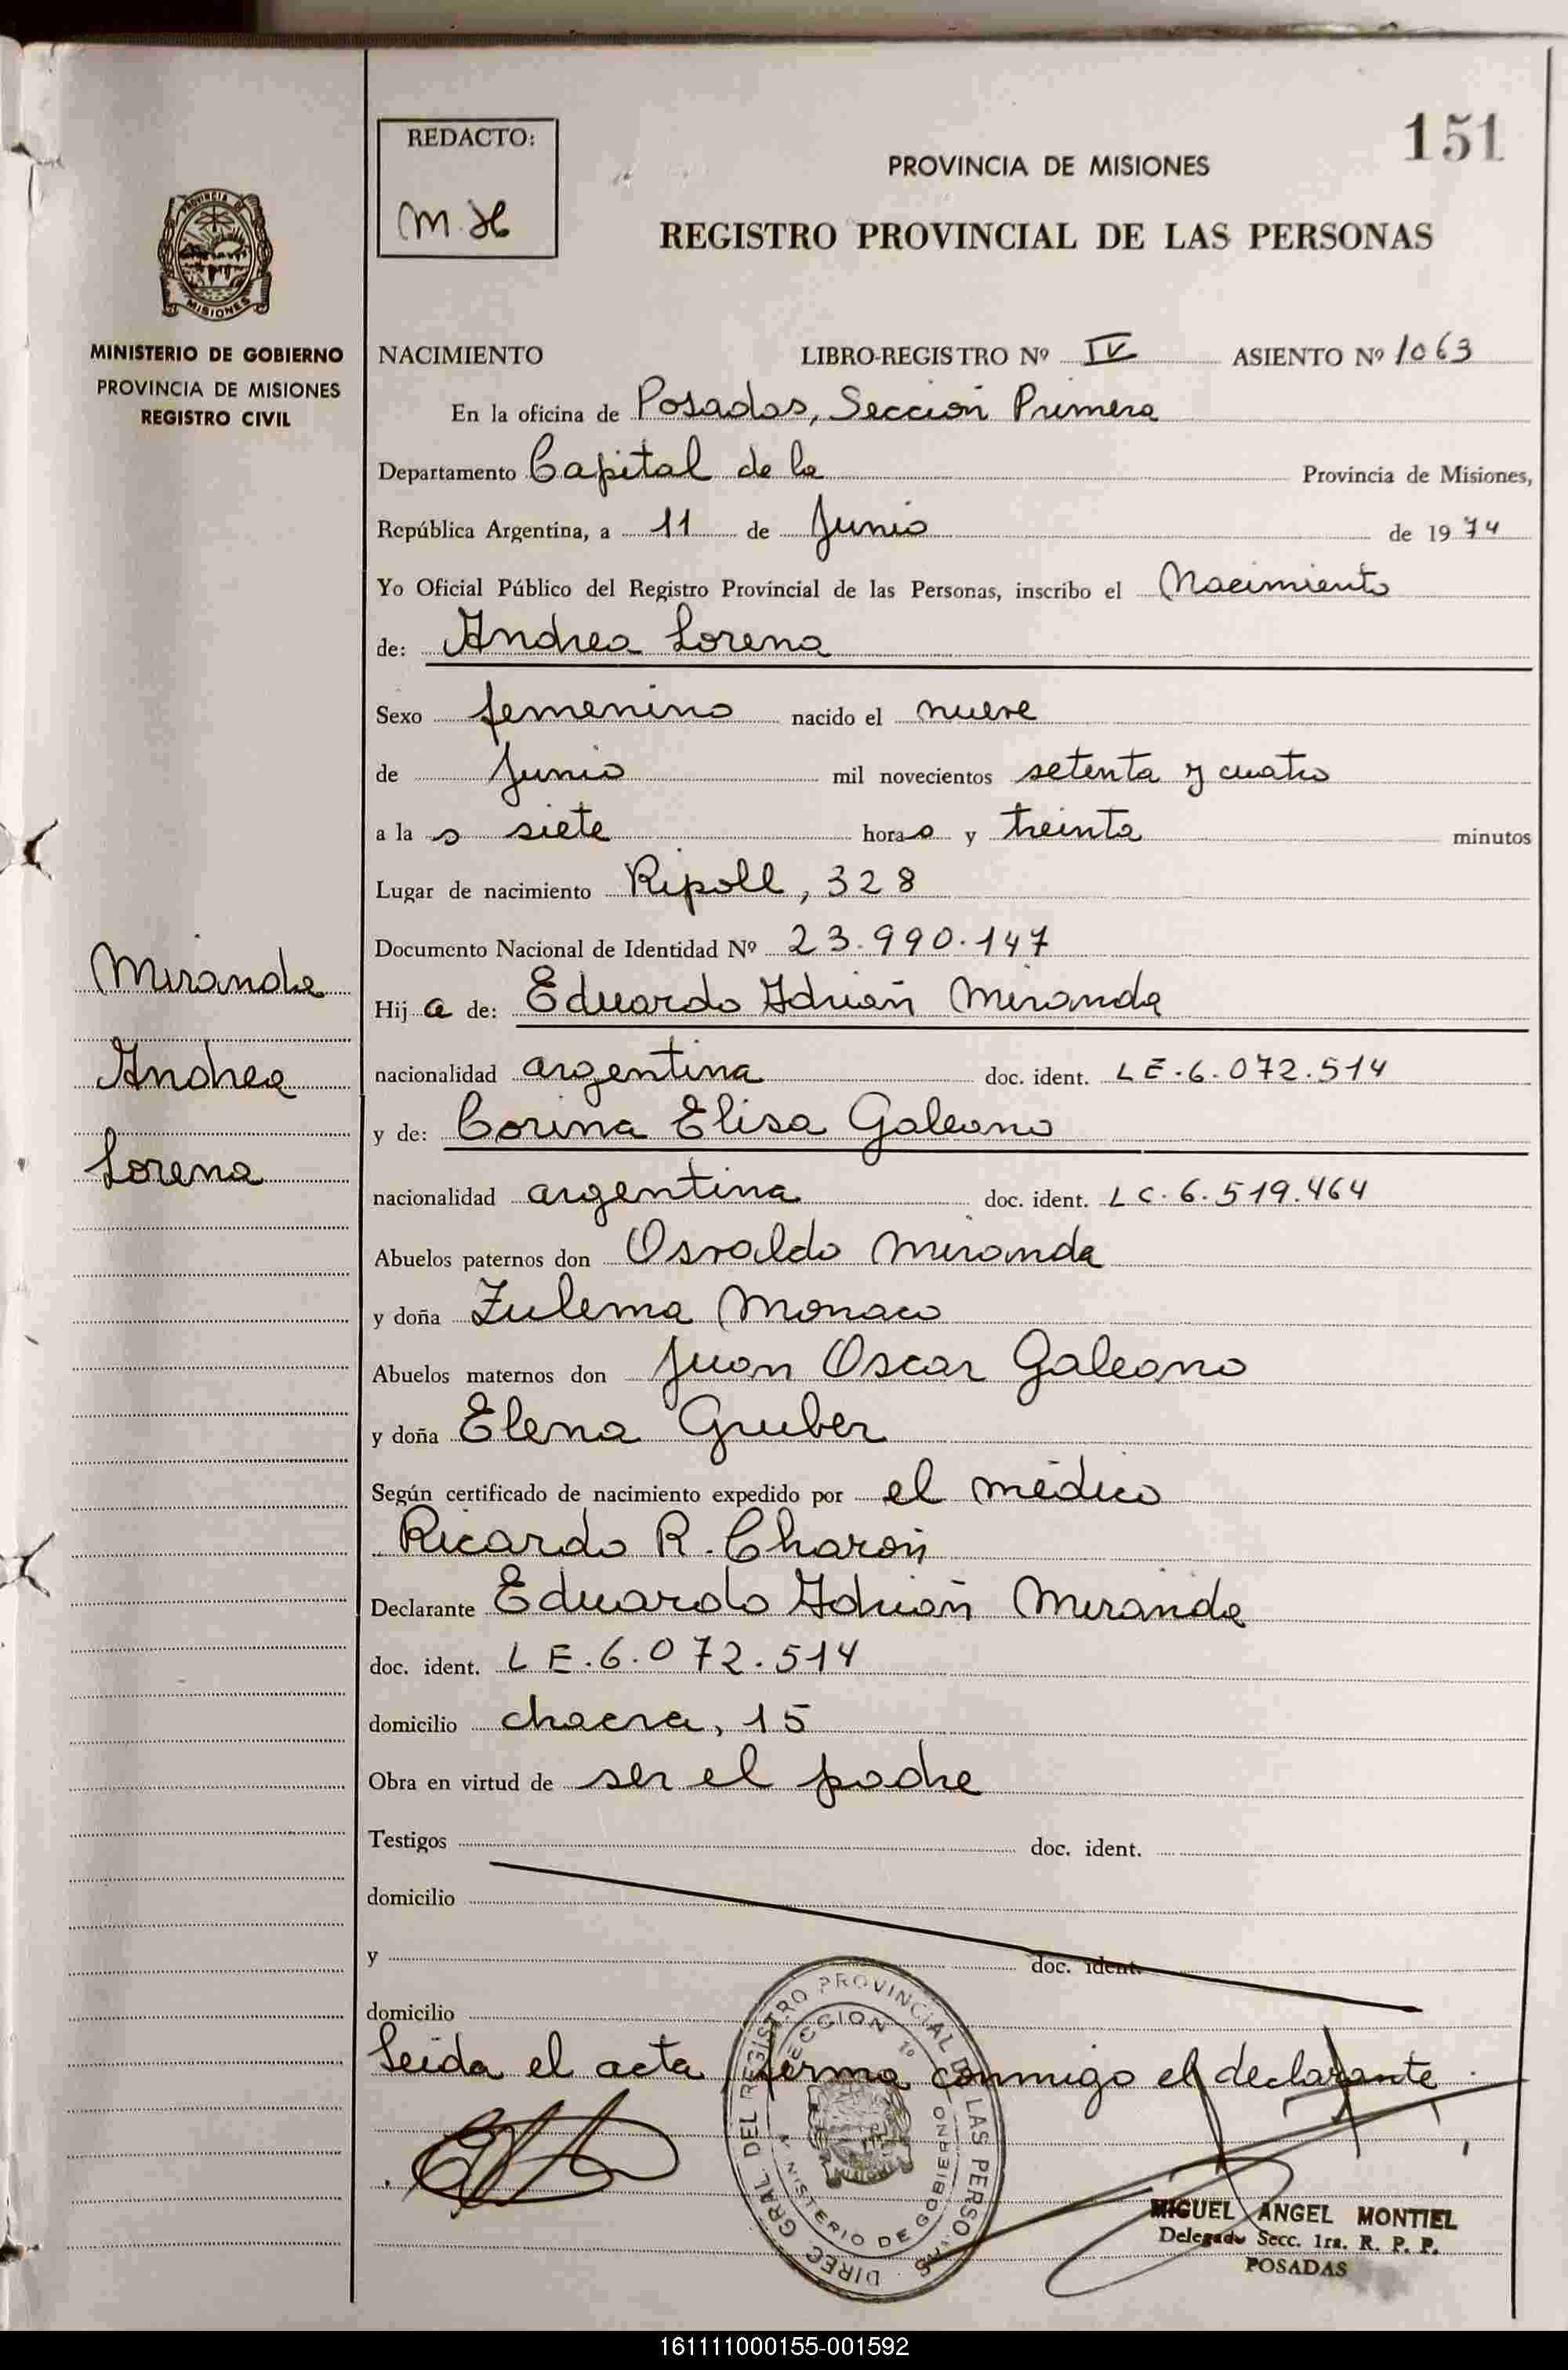 151
REDACTO:
M.H
PROVINCIA DE MISIONES
REGISTRO PROVINCIAL DE LAS PERSONAS
PROVINCIA DE
MISIONES
MINISTERIO DE GOBIERNO
PROVINCIA DE MISIONES
REGISTRO CIVIL
NACIMIENTO LIBRO-REGISTRO Nº IV ASIENTO Nº 1063
En la oficina de Posadas, Sección Primera
Departamento Capital de la Provincia de Misiones,
República Argentina, a 11 de Junio de 1974
Yo Oficial Público del Registro Provincial de las Personas, inscribo el Nacimiento
de: Andrea Lorena
Sexo femenino nacido el nueve
de Junio mil novecientos setenta y cuatro
a la s siete horas y treinta minutos
Lugar de nacimiento Ripoll, 328
Documento Nacional de Identidad Nº 23.990.147
Miranda
Andrea
Lorena
Hij a de: Eduardo Adrián Miranda
nacionalidad argentina doc. ident. LE.6.072.514
y de: Corina Elisa Galeano
nacionalidad argentina doc. ident. LC.6.519.464
Abuelos paternos don Osvaldo Miranda
y doña Zulema Monaco
Abuelos maternos don Juan Oscar Galeano
y doña Elena Gruber
Según certificado de nacimiento expedido por el médico
Ricardo R. Charón
Declarante Eduardo Adrián Miranda
doc. ident. LE.6.072.514
domicilio chacra, 15
Obra en virtud de ser el padre
Testigos doc. ident.
domicilio
y doc. ident.
domicilio
Leída el acta firma conmigo el declarante.
DIREC. GRAL. DEL REGISTRO PROVINCIAL DE LAS PERSONAS
SECCION 1º
MINISTERIO DE GOBIERNO
MIGUEL ANGEL MONTIEL
Delegado Secc. 1ra. R. P. P.
POSADAS
161111000155-001592